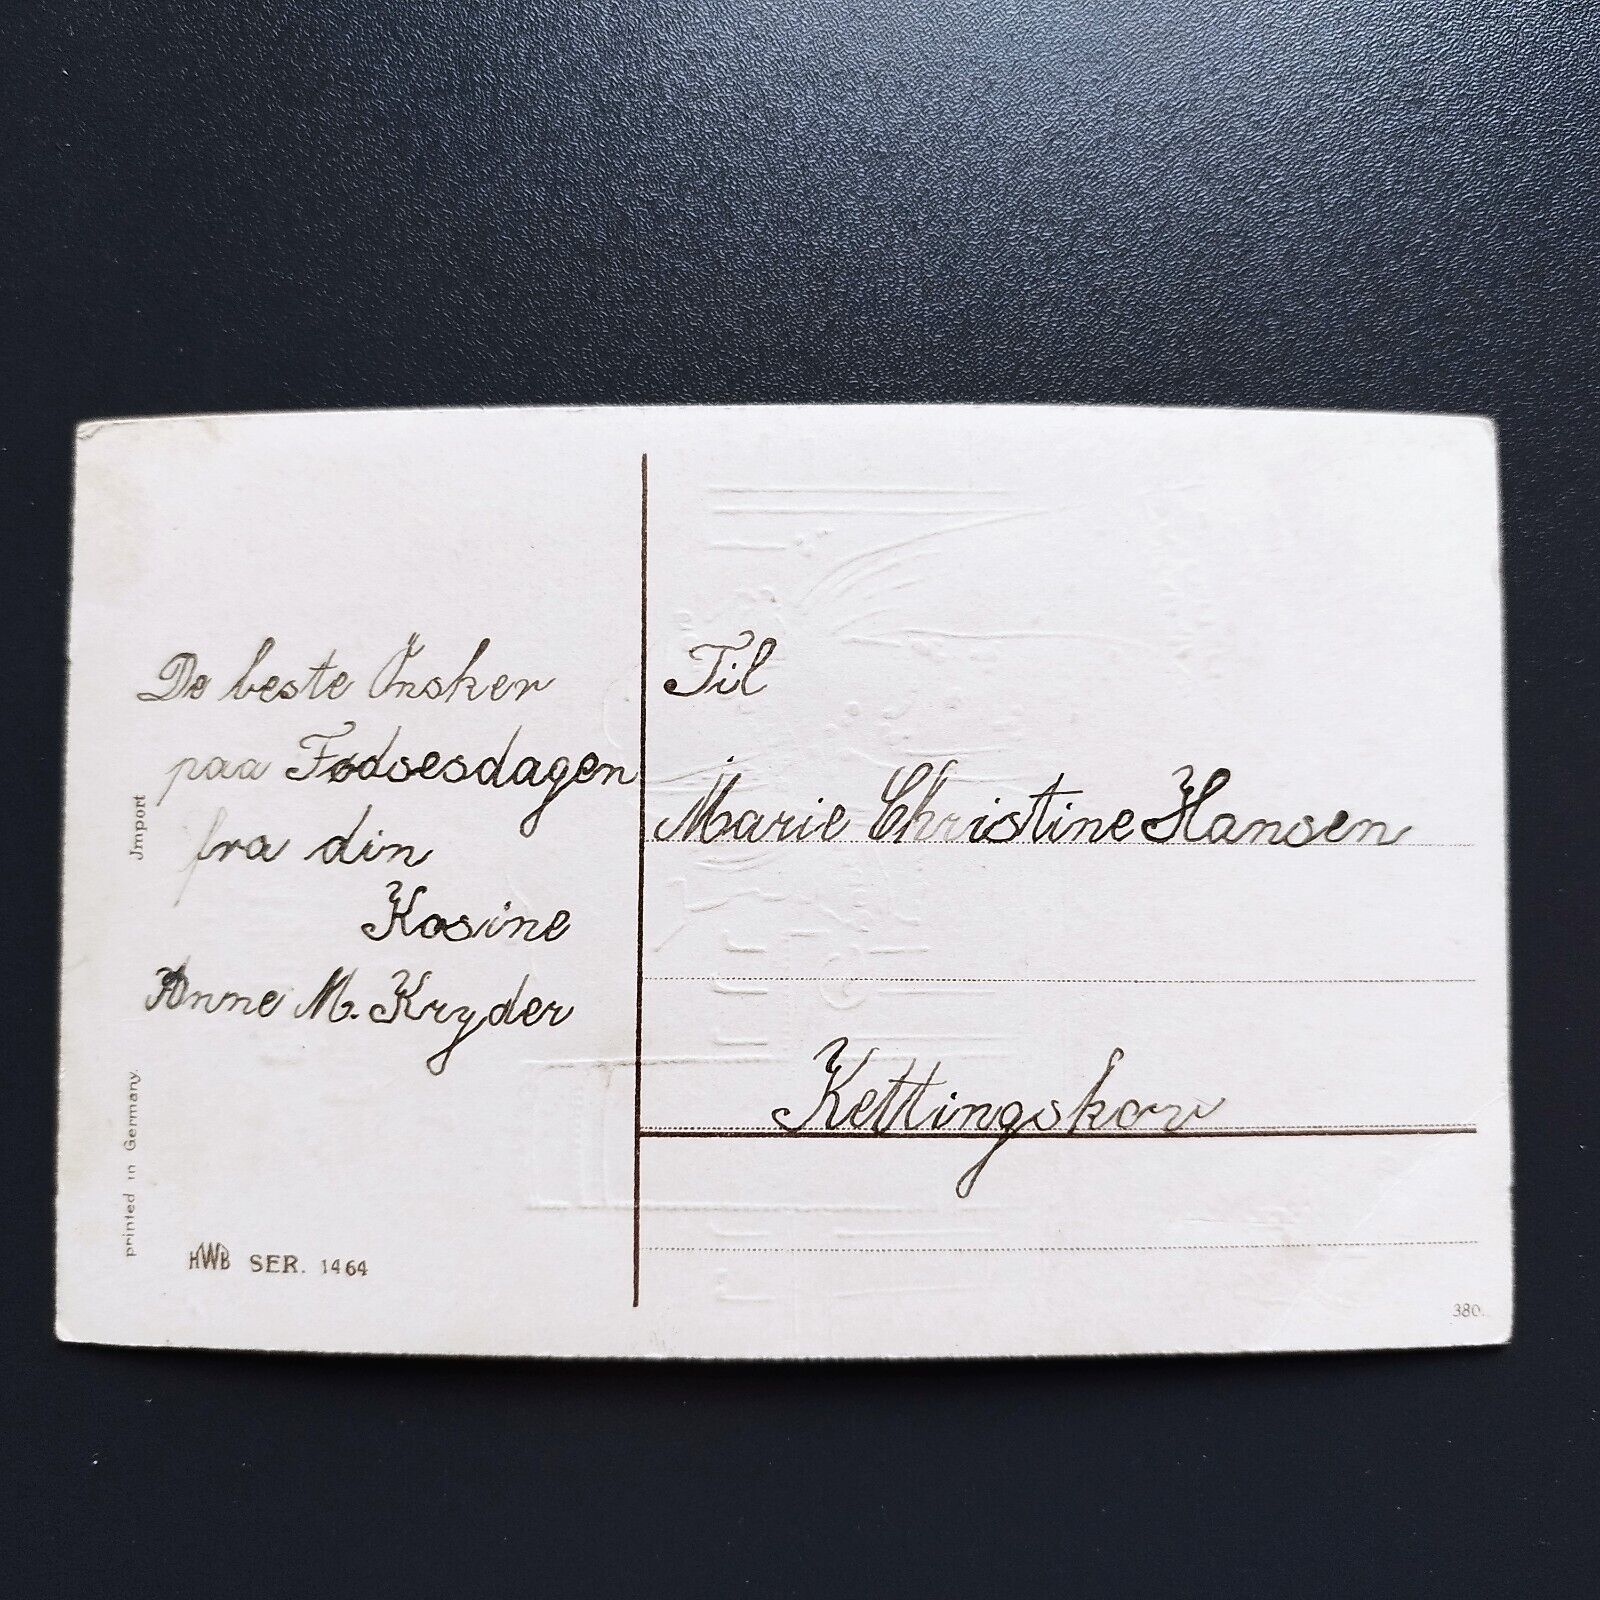 De beste Önsker
paa Fødsesdagen
fra din
Kosine
Anne M. Kryder
Til
Marie Christine Hansen
Kettingskov
Jmport
printed in Germany.
HWB SER. 1464
380.